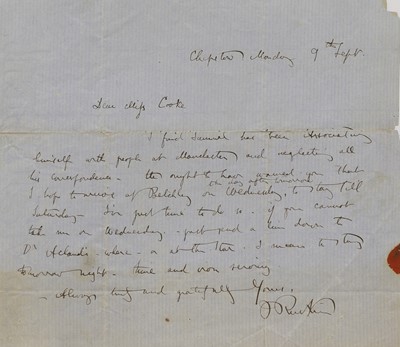 Chepstow Monday 9th Sept.
Dear Miss Cooke
I find Samuel has been Associating
himself with people at Manchester and neglecting all
his correspondence - He ought to have warned you that
the day after tomorrow
I hope to arrive at on Wednesday, to stay till
Saturday - I've just time to do so - if you cannot
take me on Wednesday - just send a line down to
Dr Aclands - where - or at the Star - I means to stay
tomorrow night - time and
- Always truly and gratefully Yours.
J Ruskin